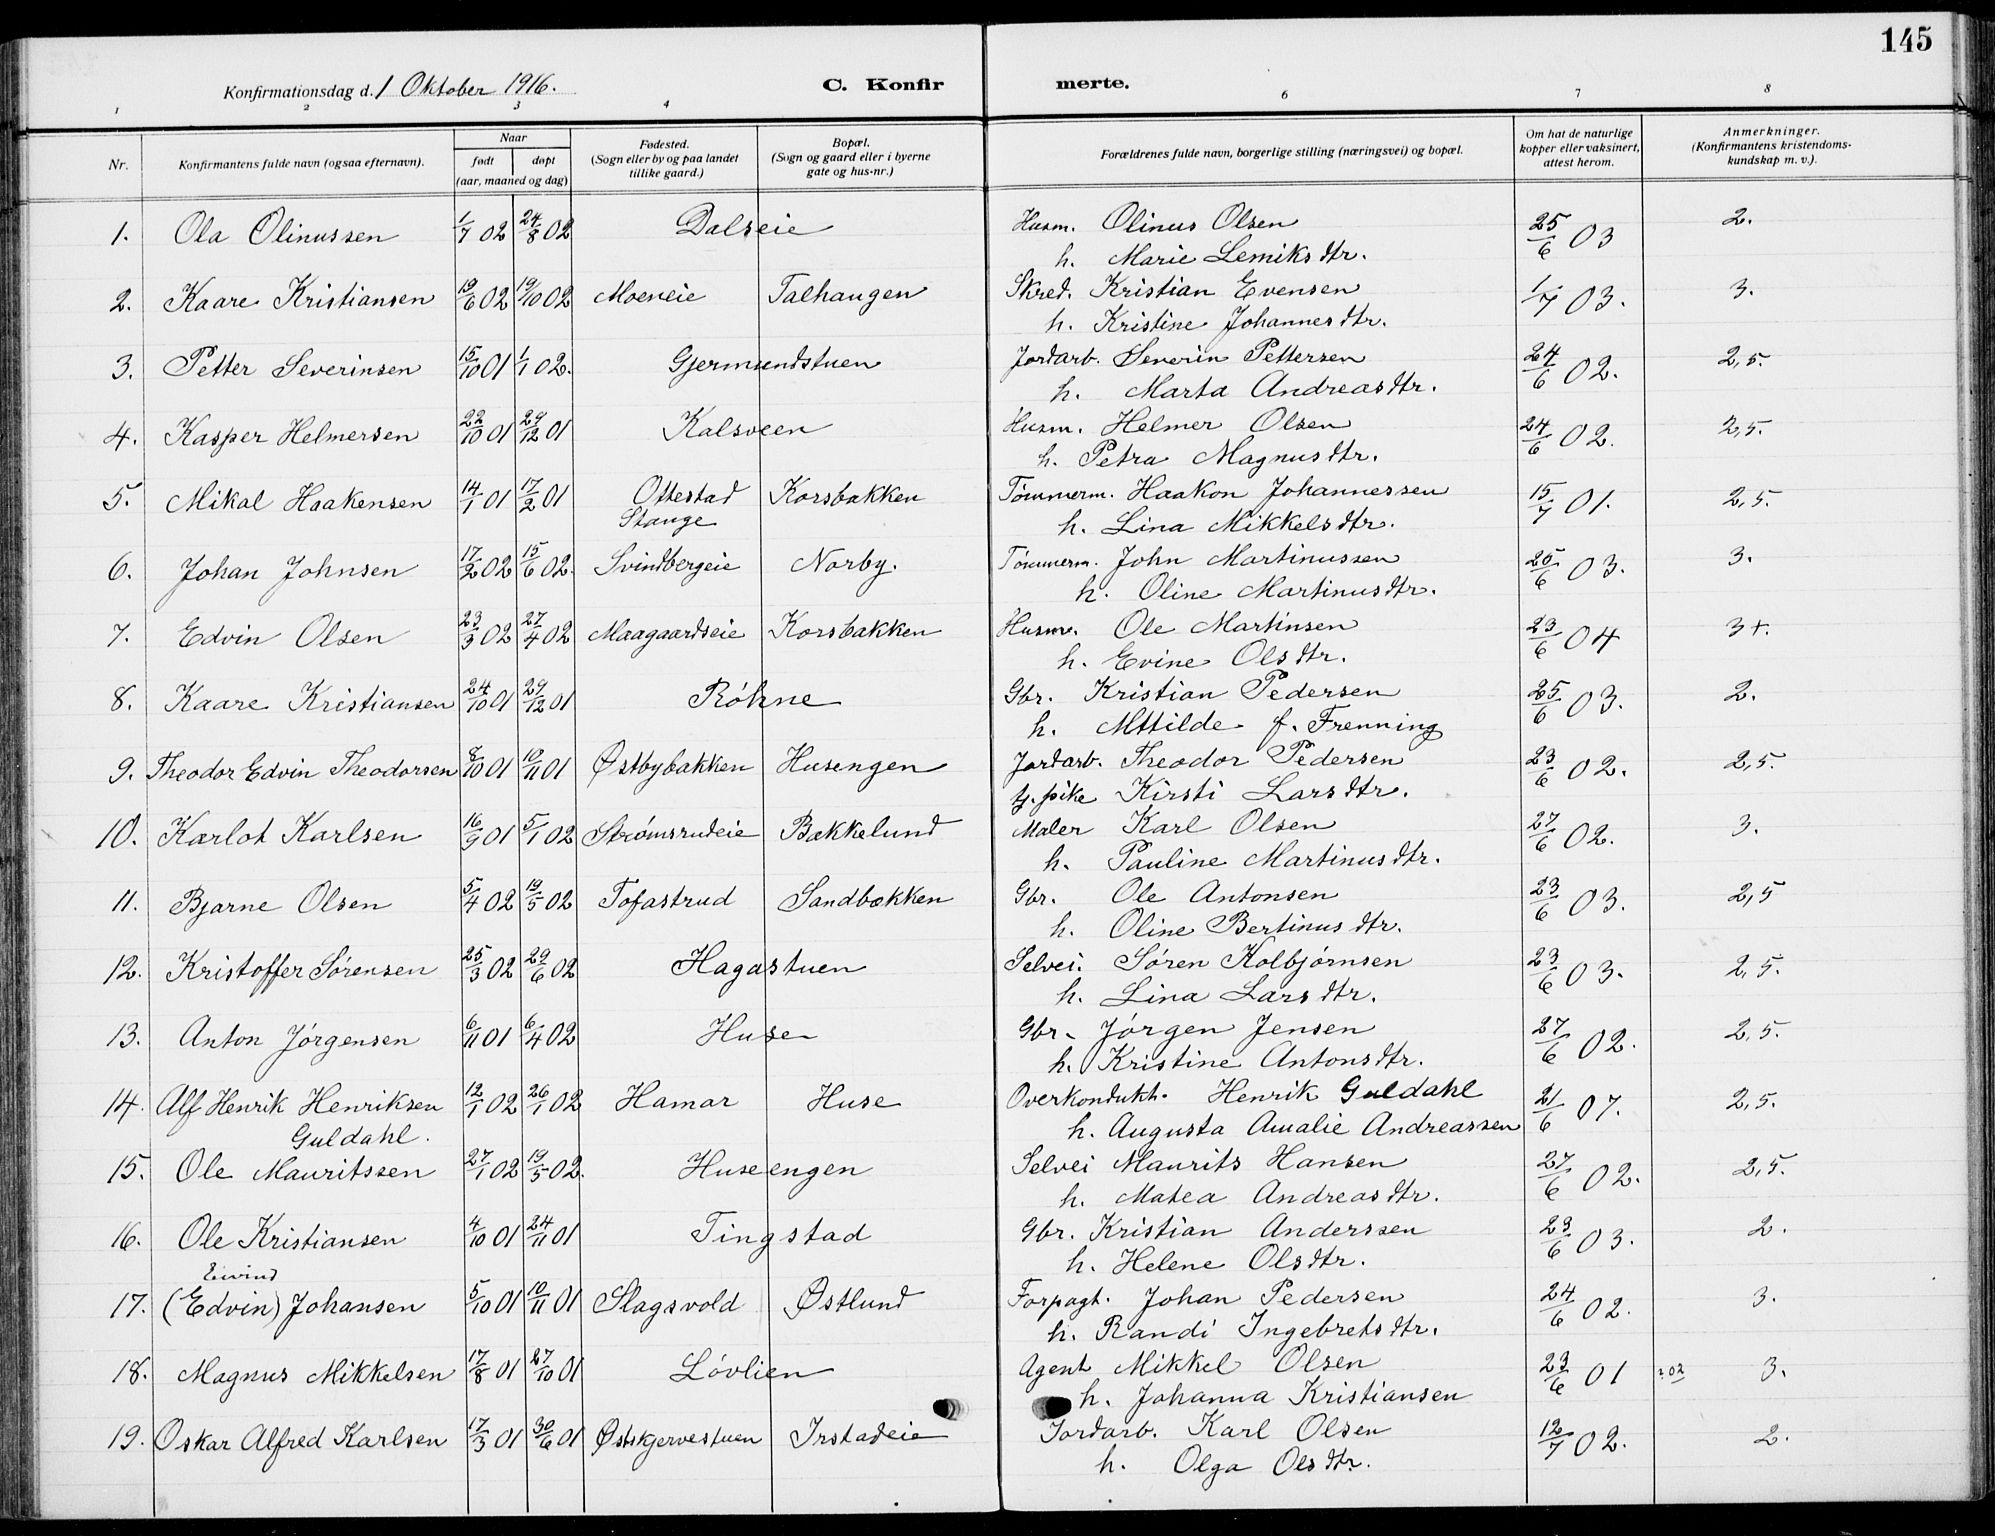 145
Konfirmationsdag d. 1 Oktober 1916.
C. Konfirmerte.
1 2 3 4 6 7 8
Nr. Konfirmantens fulde navn (ogsaa efternavn). Naar født døpt (aar, maaned og dag) Fødested. (Sogn eller by og paa landet tillike gaard.) Bopæl. (Sogn og gaard eller i byerne gate og hus-nr.) Forældrenes fulde navn, borgerlige stilling (næringsvei) og bopæl. Om hat de naturlige kopper eller vaksinert, attest herom. Anmerkninger. (Konfirmantens kristendoms-kundskap m. v.).
1. Ola Olinussen 1/7 02 24/8 02 Dalseie Husm. Olinus Olsen 25/6 03 2.
h. Marie Lemiksdtr.
2. Kaare Kristiansen 19/6 02 19/10 02 Moeneie Talhaugen Skred. Kristian Evensen 1/7 03. 3.
h. Kristine Johannesdtr.
3. Petter Severinsen 15/10 01 1/1 02. Gjermundstuen Jordarb. Severin Pettersen 24/6 02. 2,5.
h. Marta Andreasdtr.
4. Kasper Helmersen 22/10 01 29/12 01 Kalsveen Husm. Helmer Olsen 24/6 02. 2,5.
h. Petra Magnusdtr.
5. Mikal Haakensen 14/1 01 17/2 01 Ottestad Korsbakken Tømmerm. Haakon Johannessen 15/7 01. 2,5.
Stange h. Lina Mikkelsdtr.
6. Johan Johnsen 17/2 02 15/6 02. Svindbergeie Norby. Tømmerm. John Martinussen 25/6 03. 3.
h. Oline Martinusdtr.
7. Edvin Olsen 23/3 02 27/4 02 Maagaardseie Korsbakken Husm. Ole Martinsen 23/6 04 3+.
h. Evine Olsdtr.
8. Kaare Kristiansen 24/10 01 29/12 01 Røhne Gbr. Kristian Pedersen 25/6 03. 2.
h. Mttilde f. Frenning
9. Theodor Edvin Theodorsen 8/10 01 10/11 01 Østbybakken Husengen Jordarb. Theodor Pedersen 23/6 02. 2,5.
g. pike Kirsti Larsdtr.
10. Karlot Karlsen 16/9 01 5/1 02 Strømsrudeie Bakkelund Maler Karl Olsen 27/6 02. 3.
h. Pauline Martinusdtr.
11. Bjarne Olsen 5/4 02 19/5 02 Tofastrud Sandbakken Gbr. Ole Antonsen 23/6 03. 2,5
h. Oline Bertinusdtr.
12. Kristoffer Sørensen 25/3 02 29/6 02 Hagastuen Selvei. Søren Kolbjørnsen 23/6 03. 2,5.
h. Lina Larsdtr.
13. Anton Jørgensen 6/11 01 6/4 02 Huse Gbr. Jørgen Jensen 27/6 02. 2,5.
h. Kristine Antonsdtr.
14. Alf Henrik Henriksen 12/1 02 26/1 02 Hamar Huse Overkondukt. Henrik Guldahl 21/6 07. 2,5.
Guldahl. h. Augusta Amalie Andreassen
15. Ole Mauritssen 27/1 02 19/5 02. Huseengen Selvei Maurits Hansen 27/6 02. 2,5.
h. Matea Andreasdtr.
16. Ole Kristiansen 4/10 01 24/11 01 Tingstad Gbr. Kristian Anderssen 23/6 03. 2.
h. Helene Olsdtr.
Eivind
17. (Edvin) Johansen 5/10 01 10/11 01 Slagsvold Østlund Forpagt. Johan Pedersen 24/6 02. 3.
h. Randi Ingebretsdtr.
18. Magnus Mikkelsen 17/8 01 27/10 01 Løvlien Agent Mikkel Olsen 23/6 01 ?02 3.
h. Johanna Kristiansen
19. Oskar Alfred Karlsen 17/3 01 30/6 01 Østskjervestuen Irstadeie Jordarb. Karl Olsen 12/7 02. 2.
h. Olga Olsdtr.